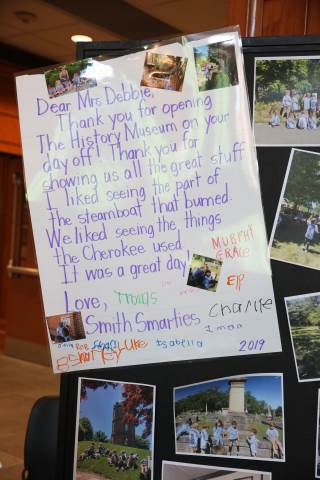 Dear Mrs. Debbie,
Thank you for opening
The History Museum on your
day off! Thank you for
showing us all the great stuff
I liked seeing the part of
the steamboat that burned.
We liked seeing the things
the Cherokee used.
It was a great day!
MURPHY
GRACE
Eli
Love,
Smith Smarties
Charlie
Luke
Isabella
2019
Charley